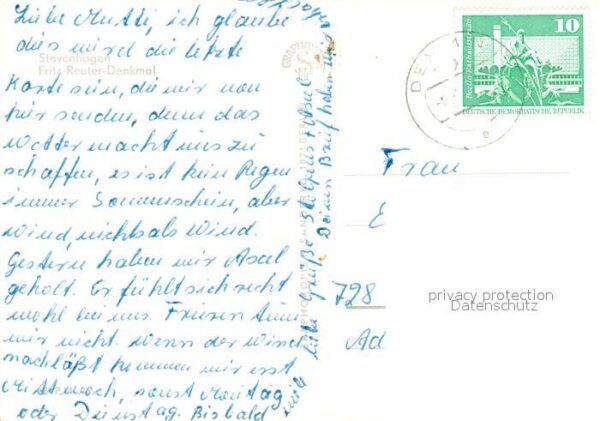 Liebe Mutti, ich glaube
dies wird die letzte
Stavenhagen
Fritz-Reuter-Denkmal
Karte sein, die wir von
hier senden, denn das
Wetter macht uns zu
schaffen, es ist kein Regen
immer Sonnenschein, aber
Wind, nichts als Wind.
Gestern haben wir Axel
geholt. Er fühlt sich recht
wohl bei uns. Frieren tun
wir nicht. Wenn der Wind
nachläßt kommen wir erst
Mittwoch, sonst Montag
oder Dienstag. Bis bald
liebe Grüße
Deinen Brief haben wir
10
Berlin Rathausstraße
DEUTSCHE DEMOKRATISCHE REPUBLIK
Frau
E
728
Ad
privacy protection
Datenschutz